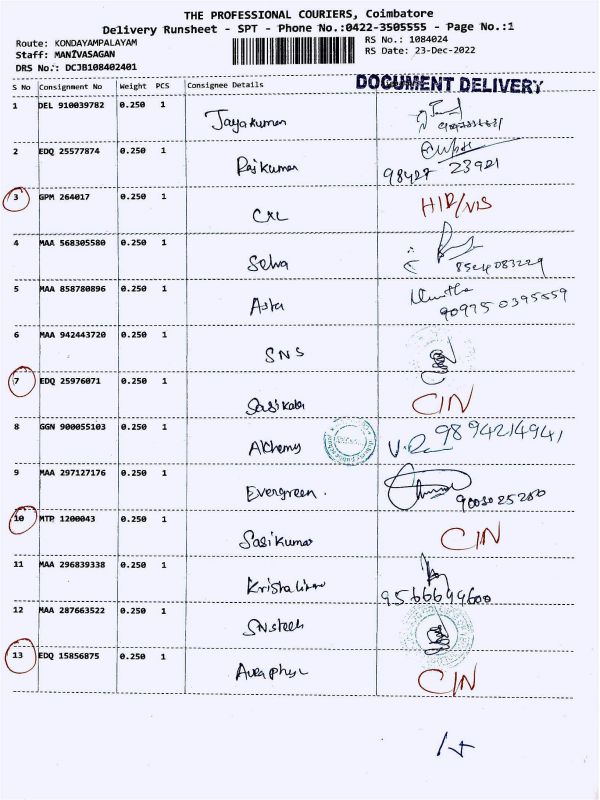 THE PROFESSIONAL COURIERS, Coimbatore
Delivery Runsheet - SPT - Phone No.:0422-3505555 - Page No.:1
Route: KONDAYAMPALAYAM
RS No.: 1084024
Staff: MANIVASAGAN
RS Date: 23-Dec-2022
DRS No.: DCJB108402401
S No Consignment No Weight PCS Consignee Details DOCUMENT DELIVERY
1 DEL 910039782 0.250 1 Jayakumar
2 EDQ 25577874 0.250 1 Rajkumar 98427 23921
3 GPM 264017 0.250 1
4 MAA 568305580 0.250 1 Selva 8524083229
5 MAA 858780896 0.250 1 Asta
6 MAA 942443720 0.250 1 SNS
7 EDQ 25976071 0.250 1 Sasikala CIN
8 GGN 900055103 0.250 1 Alchemy 9894214941
9 MAA 297127176 0.250 1 Evergreen.
10 MTP 1200043 0.250 1 Sasikumar CIN
11 MAA 296839338 0.250 1 9566649600
12 MAA 287663522 0.250 1 SNStech
13 EDQ 15856875 0.250 1 CIN